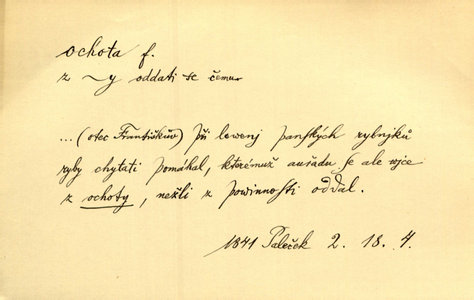 ochota f.
z ~y oddati se čemu
...(otec Františkův) při lowenj panských rybnjků
ryby chytati pomáhal, kterémuž auřadu se ale wjce
z ochoty, nežli z powinnosti oddal.
1841 Paleček 2. 18. 4.